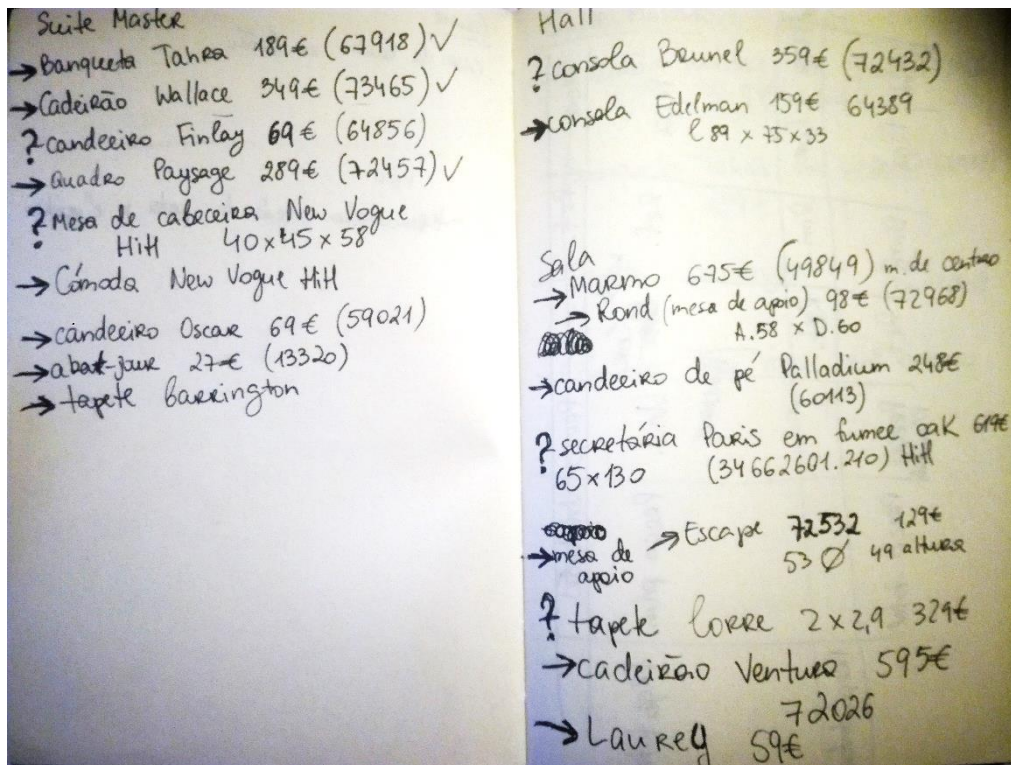 Suite Master
→ Banqueta Tahra 189€ (67918) ✓
→ Cadeirão Wallace 349€ (73465) ✓
? candeeiro Finlay 69€ (64856)
→ Quadro Paysage 289€ (72457) ✓
? Mesa de cabeceira New Vogue
HiH 40x45x58
→ Cómoda New Vogue HiH
→ candeeiro Oscar 69€ (59021)
→ abat-jour 27€ (13320)
→ tapete Barrington
Hall
? consola Brunel 359€ (72432)
→ consola Edelman 159€ 64389
l 89 x 75 x 33
Sala
→ Marmo 675€ (49849) m. de centro
→ Rond (mesa de apoio) 98€ (72968)
A.58 x D.60
→ candeeiro de pé Palladium 248€
(60113)
? secretária Paris em fumee oak 619€
65x130 (34662601.210) HiH
→ Escape 72532 129€
→ mesa de apoio 53 Ø 49 altura
? tapete Lorre 2 x 2,9 329€
→ cadeirão Ventura 595€
72026
→ Laurey 59€